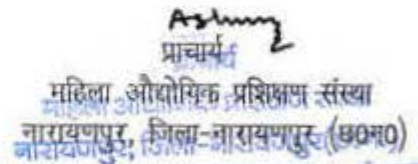 प्राचार्य
महिला औद्योगिक प्रशिक्षण संस्था
नारायणपुर, जिला-नारायणपुर (छ0ग0)